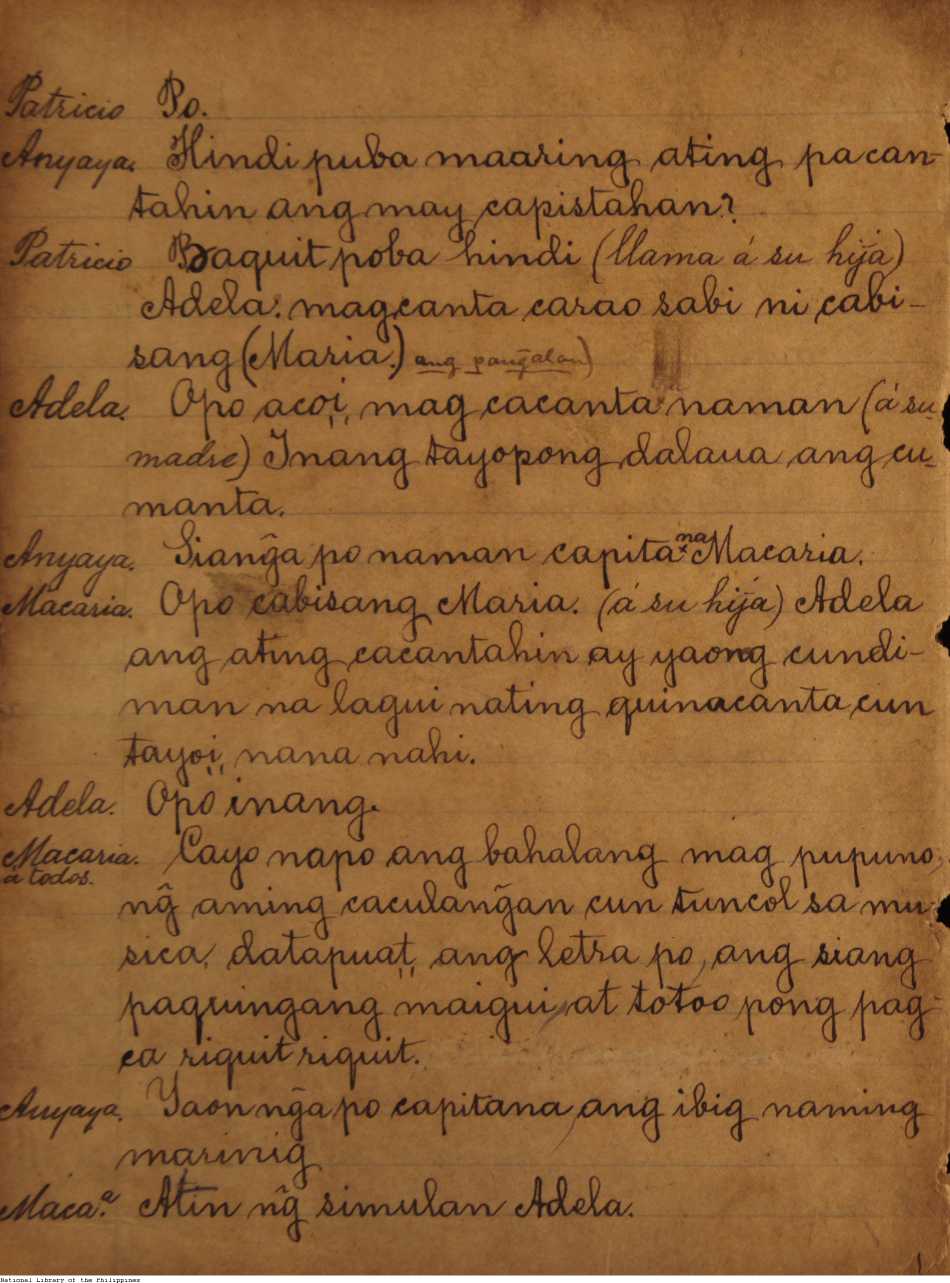 Patricio Po.
Anyaya. Hindi puba maaring ating pacan-
tahin ang may capistahan?
Patricio Baquit poba hindi (llama á su hija)
Adela: magcanta carao sabi ni cabi-
sang (Maria.) ang pang̃alan)
Adela. Opo acoi,, mag cacanta naman (á su
madre) Inang tayopong dalaua ang cu-
manta.
Anyaya. Siang̃a po naman capitana Macaria.
Macaria. Opo cabisang Maria. (á su hija) Adela
ang ating cacantahin ay yaong cundi-
man na lagui nating quinacanta cun
tayoi,, nana nahi.
Adela. Opo inang.
Macaria. Cayo napo ang bahalang mag pupuno,
á todos.
ng̃ aming caculang̃an cun tuncol sa mu-
sica, datapuat,, ang letra po, ang siang
paquingang maigui, at totoo pong pag-
ca riquit riquit.
Anyaya. Yaon ng̃a po capitana, ang ibig naming
marinig
Maca.ª Atin ng̃ simulan Adela.
National Library of the Philippines